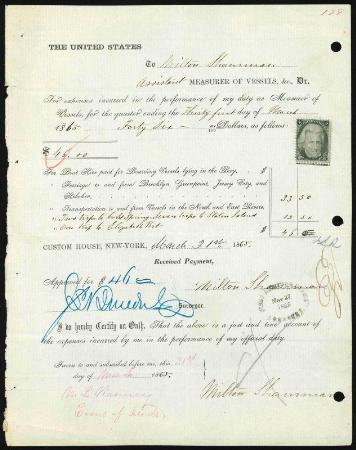 128
THE UNITED STATES
To Milton Shannman
Assistant MEASURER OF VESSELS, &c., Dr.
For expenses incurred in the performance of my duty as Measurer of
Vessels, for the quarter ending the Thirty first day of March
1865 Forty Six Dollars, as follows:
$ 46.00
For Boat Hire paid for Boarding Vessels lying in the Bay,
" Ferriage to and from Brooklyn, Greenpoint, Jersey City, and
Hoboken,
33 50
" Transportation to and from Vessels in the North and East Rivers,
" Two trips to Cold Spring Seven trips to Staten Island
12 50
" One trip to Elizabeth Port
CUSTOM HOUSE, NEW-YORK, March 31st 1865.
Received Payment,
Approved for $ 46
Milton Shannman
Surveyor.
I do hereby Certify on Oath, That the above is a just and true account of
the expenses incurred by me in the performance of my official duty.
Sworn to and subscribed before me, this 31st
day of March 1865.
Milton Shannman